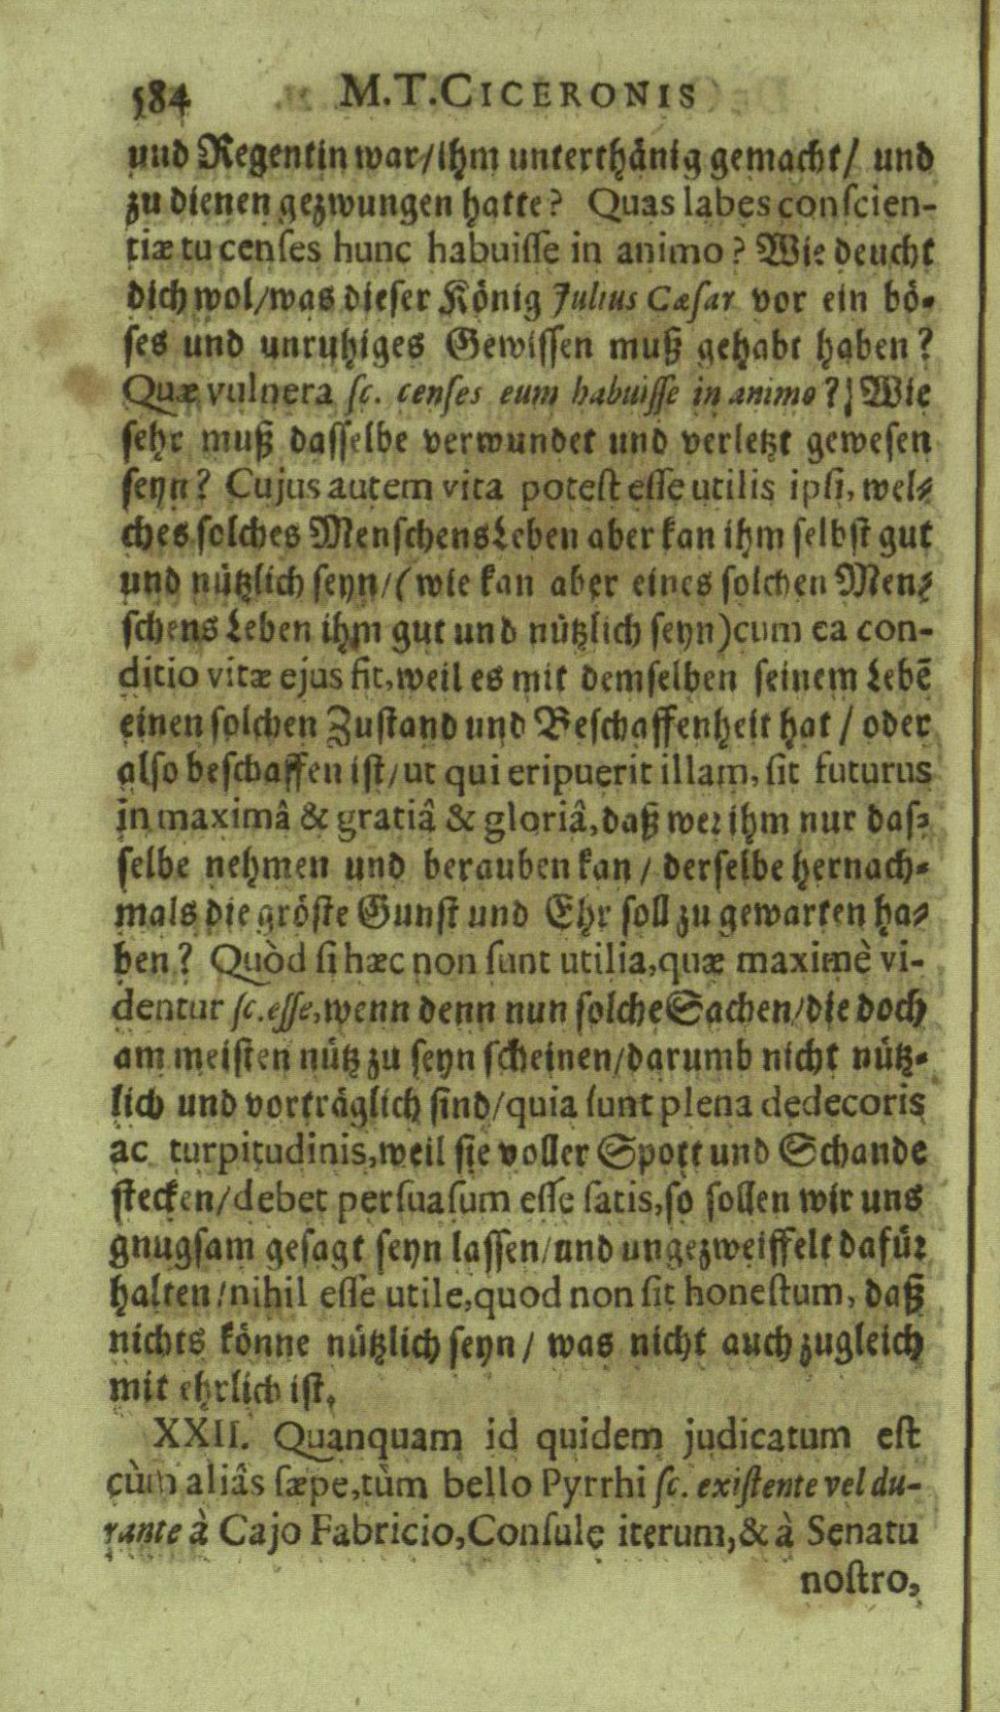 584 M.T.CICERONIS
und Regentin war/ihm unterthänig gemacht/ und
zu dienen gezwungen hatte? Quas labes conſcien-
tiæ tu cenſes hunc habuiſſe in animo? Wie deucht
dich wol/was dieſer König Julius Cæſar vor ein bö-
ſes und unruhiges Gewiſſen muß gehabt haben?
Quæ vulnera ſc. cenſes eum habuiſſe in animo? Wie
ſehr muß daſſelbe verwundet und verletzt geweſen
ſeyn? Cujus autem vita poteſt eſſe utilis ipſi, wel-
ches ſolches Menſchens Leben aber kan ihm ſelbſt gut
und nützlich ſeyn/(wie kan aber eines ſolchen Men-
ſchens Leben ihm gut und nützlich ſeyn)cum ea con-
ditio vitæ ejus ſit,weil es mit demſelben ſeinem Lebē
einen ſolchen Zuſtand und Beſchaffenheit hat / oder
alſo beſchaffen iſt/ut qui eripuerit illam, ſit futurus
in maximâ & gratiâ & gloriâ,daß wer ihm nur daſ-
ſelbe nehmen und berauben kan / derſelbe hernach-
mals die gröſte Gunſt und Ehr ſoll zu gewarten ha-
ben? Quòd ſi hæc non ſunt utilia,quæ maximè vi-
dentur ſc.eſſe,wenn denn nun ſolche Sachen/die doch
am meiſten nütz zu ſeyn ſcheinen/darumb nicht nütz-
lich und vorträglich ſind/quia ſunt plena dedecoris
ac turpitudinis,weil ſie voller Spott und Schande
ſtecken/debet perſuaſum eſſe ſatis,ſo ſollen wir uns
gnugſam geſagt ſeyn laſſen/und ungezweiffelt dafür
halten/nihil eſſe utile,quod non ſit honeſtum, daß
nichts könne nützlich ſeyn / was nicht auch zugleich
mit ehrlich iſt.
XXII. Quanquam id quidem judicatum eſt
cùm aliâs ſæpe,tùm bello Pyrrhi ſc. exiſtente vel du-
rante à Cajo Fabricio,Conſule iterum,& à Senatu
noſtro,